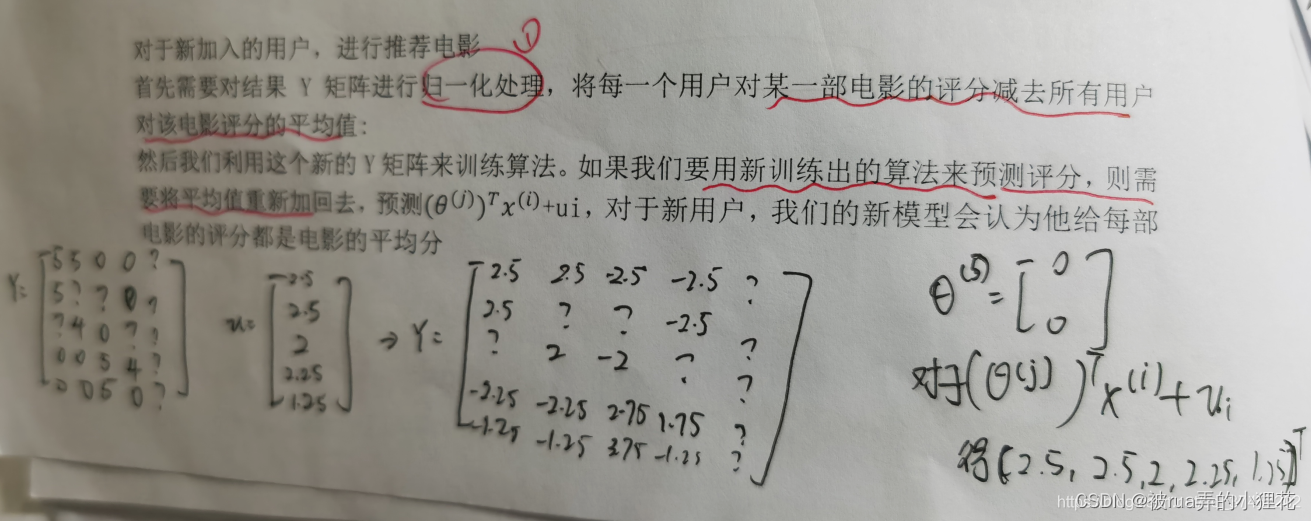 对于新加入的用户，进行推荐电影
①
首先需要对结果 Y 矩阵进行归一化处理，将每一个用户对某一部电影的评分减去所有用户
对该电影评分的平均值：
然后我们利用这个新的 Y 矩阵来训练算法。如果我们要用新训练出的算法来预测评分，则需
要将平均值重新加回去，预测(θ^(j))^T x^(i)+ui，对于新用户，我们的新模型会认为他给每部
电影的评分都是电影的平均分
Y=
5 5 0 0 ?
5 ? ? 0 ?
? 4 0 ? ?
0 0 5 4 ?
0 0 5 0 ?
u=
2.5
2.5
2
2.25
1.25
→ Y=
2.5 2.5 -2.5 -2.5 ?
2.5 ? ? -2.5
? 2 -2 ? ?
?
-2.25 -2.25 2.75 1.75 ?
-1.25 -1.25 3.75 -1.25 ?
θ^(5) = [0
0]
对于(θ^(j))^T x^(i)+ui
得[2.5, 2.5, 2, 2.25, 1.25]^T
CSDN @被rua弄的小狸花